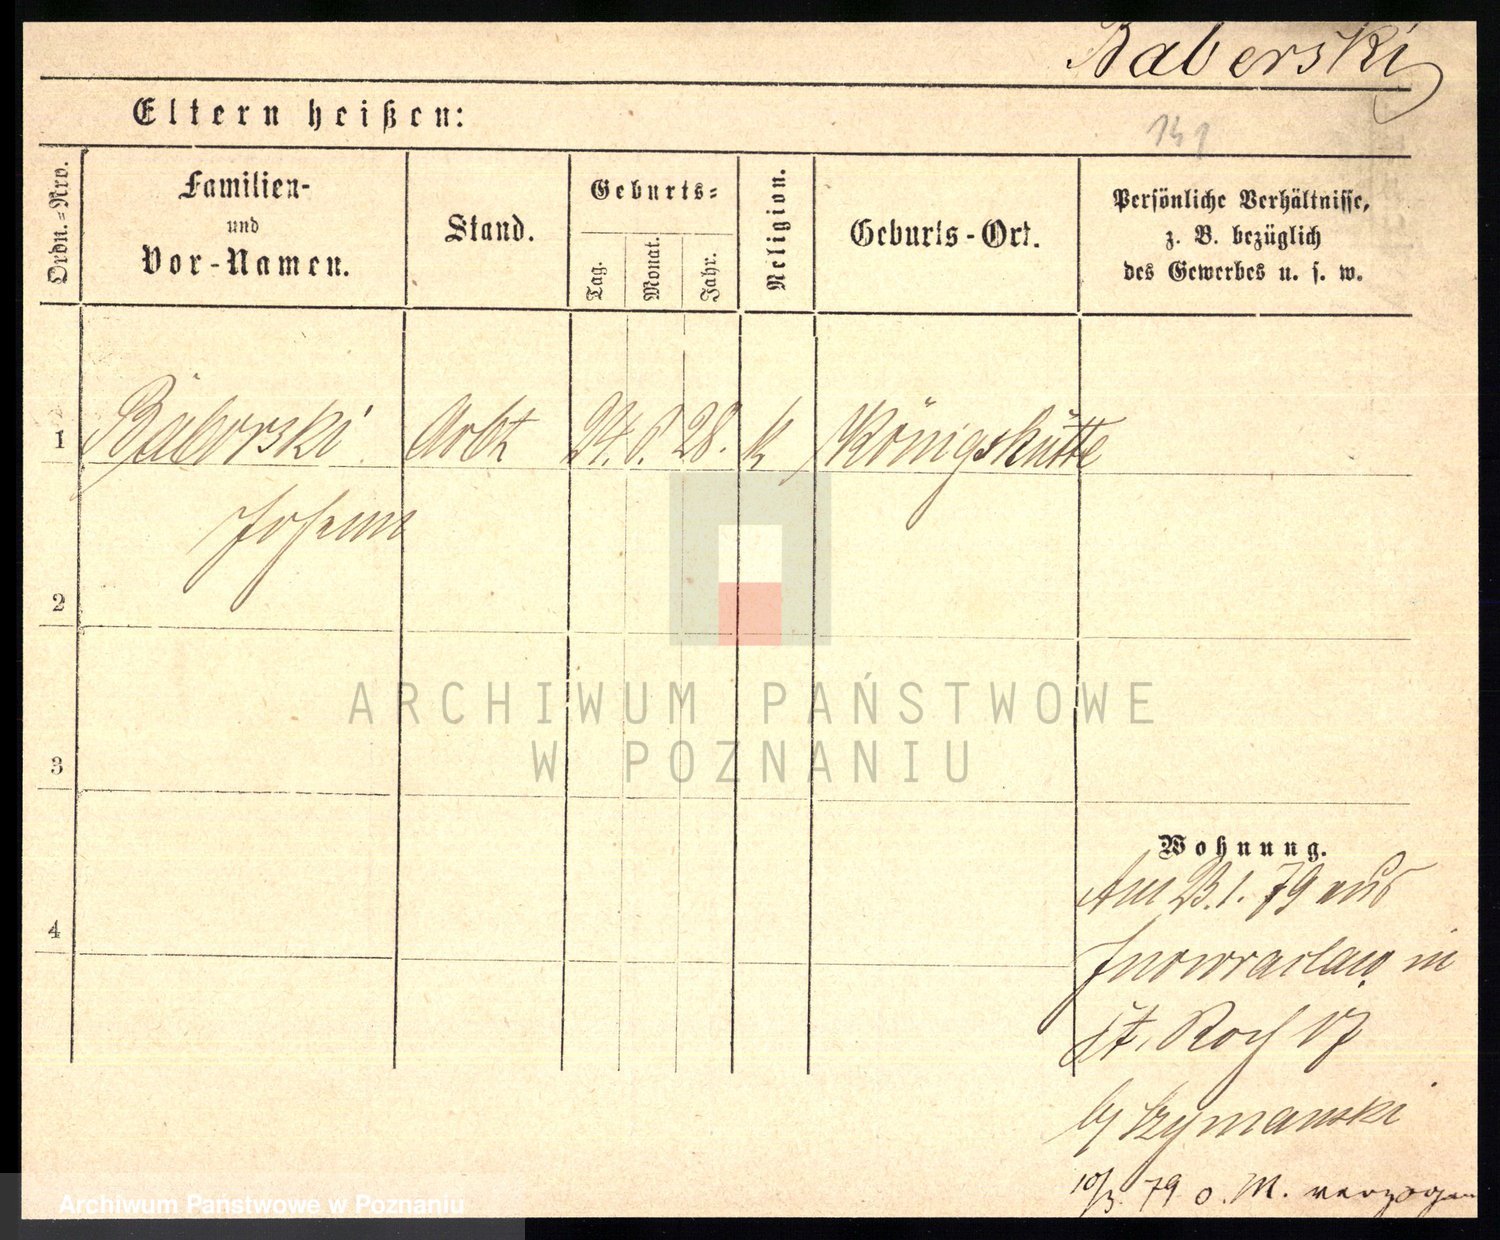 Baberski
Eltern heißen:
141
Ordn.=Nro.
Familien-
und
Vor-Namen.
Stand.
Geburts=
Tag.
Monat.
Jahr.
Religion.
Geburts-Ort.
Persönliche Verhältnisse,
z. B. bezüglich
des Gewerbes u. s. w.
1
Baberski Arbtr 24. 8. 28. K Königshütte
Johann
2
3
4
ARCHIWUM PAŃSTWOWE
W POZNANIU
Wohnung.
Am 23.1.79 aus
Inowraclaw in
St. Roch 17
b/ Szymanski
10/3. 79 o. M. verzogen
Archiwum Państwowe w Poznaniu